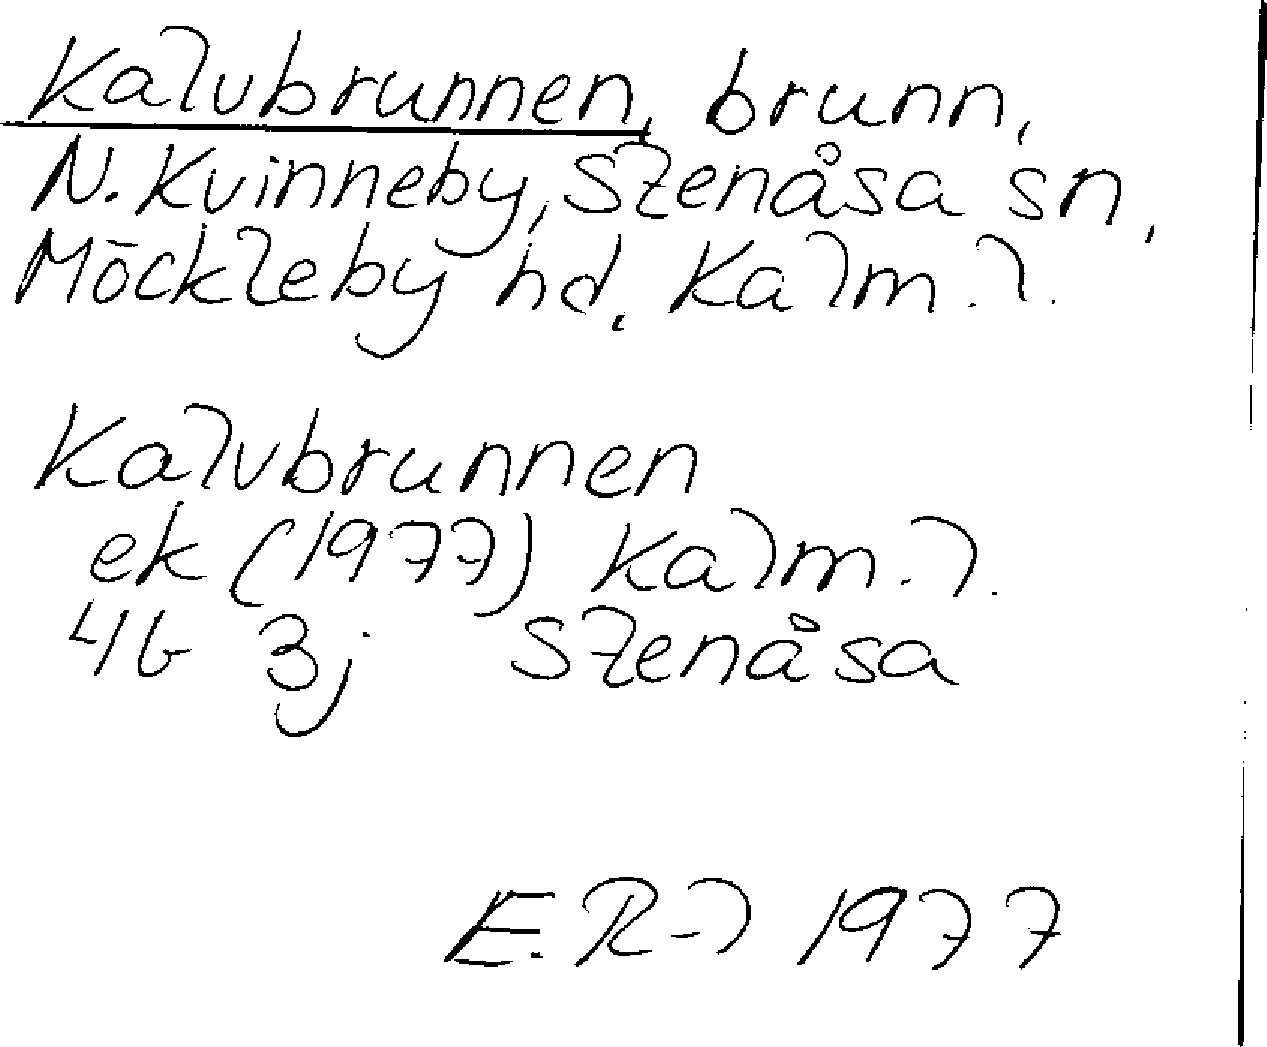 Kalvbrunnen, brunn,
N. Kvinneby, Stenåsa sn,
Möckleby hd, Kalm. l.
Kalvbrunnen
ek (1977) Kalm. l.
4G 3j Stenåsa
1977